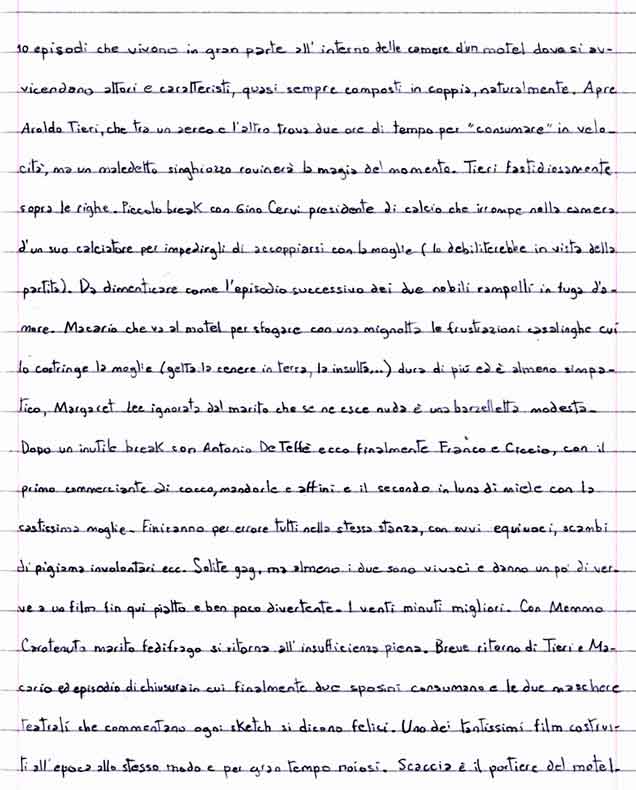 10 episodi che vivono in gran parte all'interno delle camere d'un motel dove si av-
vicendano attori e caratteristi, quasi sempre composti in coppia, naturalmente. Apre
Aroldo Tieri, che tra un aereo e l'altro trova due ore di tempo per "consumare" in velo-
cità, ma un maledetto singhiozzo rovinerà la magia del momento. Tieri fastidiosamente
sopra le righe. Piccolo break con Gino Cervi presidente di calcio che irrompe nella camera
d'un suo calciatore per impedirgli di accoppiarsi con la moglie (lo debiliterebbe in vista della
partita). Da dimenticare come l'episodio successivo dei due nobili rampolli in fuga d'a-
more. Macario che va al motel per sfogare con una mignotta le frustrazioni casalinghe cui
lo costringe la moglie (getta la cenere in terra, la insulta...) dura di più ed è almeno simpa-
tico, Margaret Lee ignorata dal marito che se ne esce nuda è una barzelletta modesta.
Dopo un inutile break con Antonio De Teffè ecco finalmente Franco e Ciccio, con il
primo commerciante di cocco, mandorle e affini e il secondo in luna di miele con la
castissima moglie. Finiranno per errore tutti nella stessa stanza, con ovvi equivoci, scambi
di pigiama involontari ecc. Solite gag, ma almeno i due sono vivaci e danno un po' di ver-
ve a un film fin qui piatto e ben poco divertente. I venti minuti migliori. Con Memmo
Carotenuto marito fedifrago si ritorna all'insufficienza piena. Breve ritorno di Tieri e Ma-
cario ed episodio di chiusura in cui finalmente due sposini consumano e le due maschere
teatrali che commentano ogni sketch si dicono felici. Uno dei tantissimi film costrui-
ti all'epoca allo stesso modo e per gran tempo noiosi. Scaccia è il portiere del motel.